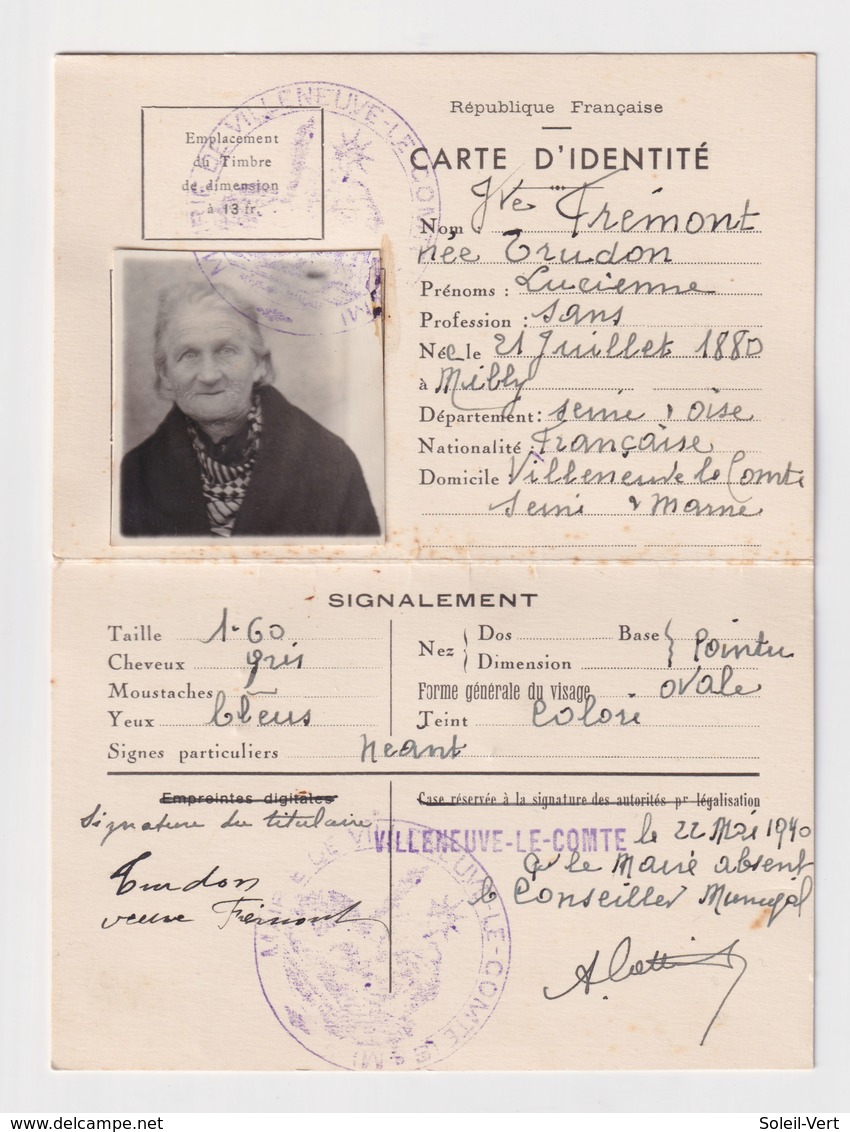 République Française
CARTE D'IDENTITÉ
Emplacement
du Timbre
de dimension
à 13 fr.
MAIRIE DE VILLENEUVE-LE-COMTE
Nom : Vve Frémont
née Trudon
Prénoms : Lucienne
Profession : sans
Née le 21 Juillet 1880
à Milly
Département : seine & oise
Nationalité : Française
Domicile Villeneuve le Comte
seine & marne
SIGNALEMENT
Taille 1-60
Cheveux gris
Moustaches –
Yeux bleus
Signes particuliers neant
Nez { Dos Base } Pointu
Dimension
Forme générale du visage ovale
Teint Coloré
Empreintes digitales
signature du titulaire
Trudon
veuve Frémont
Case réservée à la signature des autorités pr légalisation
VILLENEUVE-LE-COMTE le 22 Mai 1940
le Maire absent
le Conseiller Municipal
MAIRIE DE VILLENEUVE-LE-COMTE
Soleil-Vert